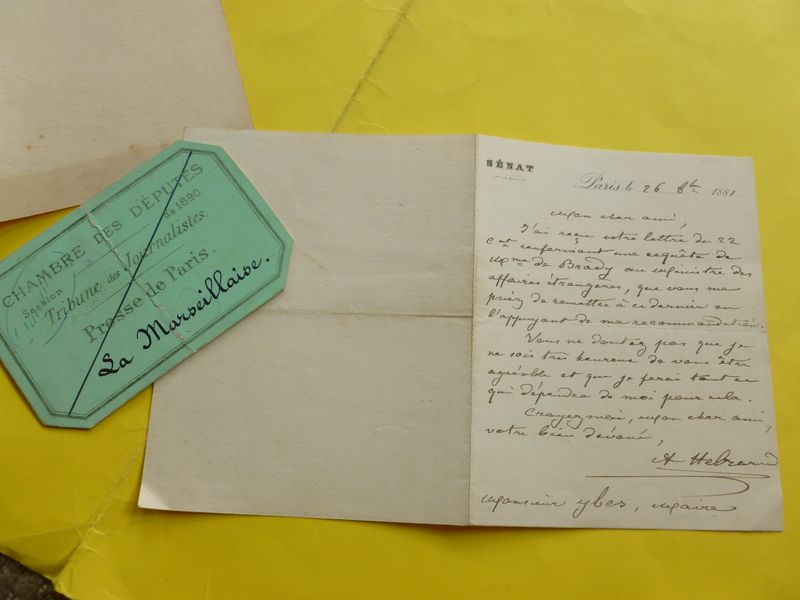 CHAMBRE DES DÉPUTÉS
Session de 1890
Tribune des Journalistes.
Presse de Paris.
La Marseillaise.
SÉNAT
Paris, le 26 8bre 1881
Mon cher ami,
J'ai reçu votre lettre du 22
ct renfermant une requête de
Mme de Brady au Ministre des
affaires étrangères, que vous me
priez de remettre à ce dernier en
l'appuyant de ma recommandation.
Vous ne doutez pas que je
ne sois très heureux de vous être
agréable et que je ferai tout ce
qui dépendra de moi pour cela.
Croyez moi, mon cher ami,
votre bien dévoué,
A Hebrard
Monsieur Ybes, Maire